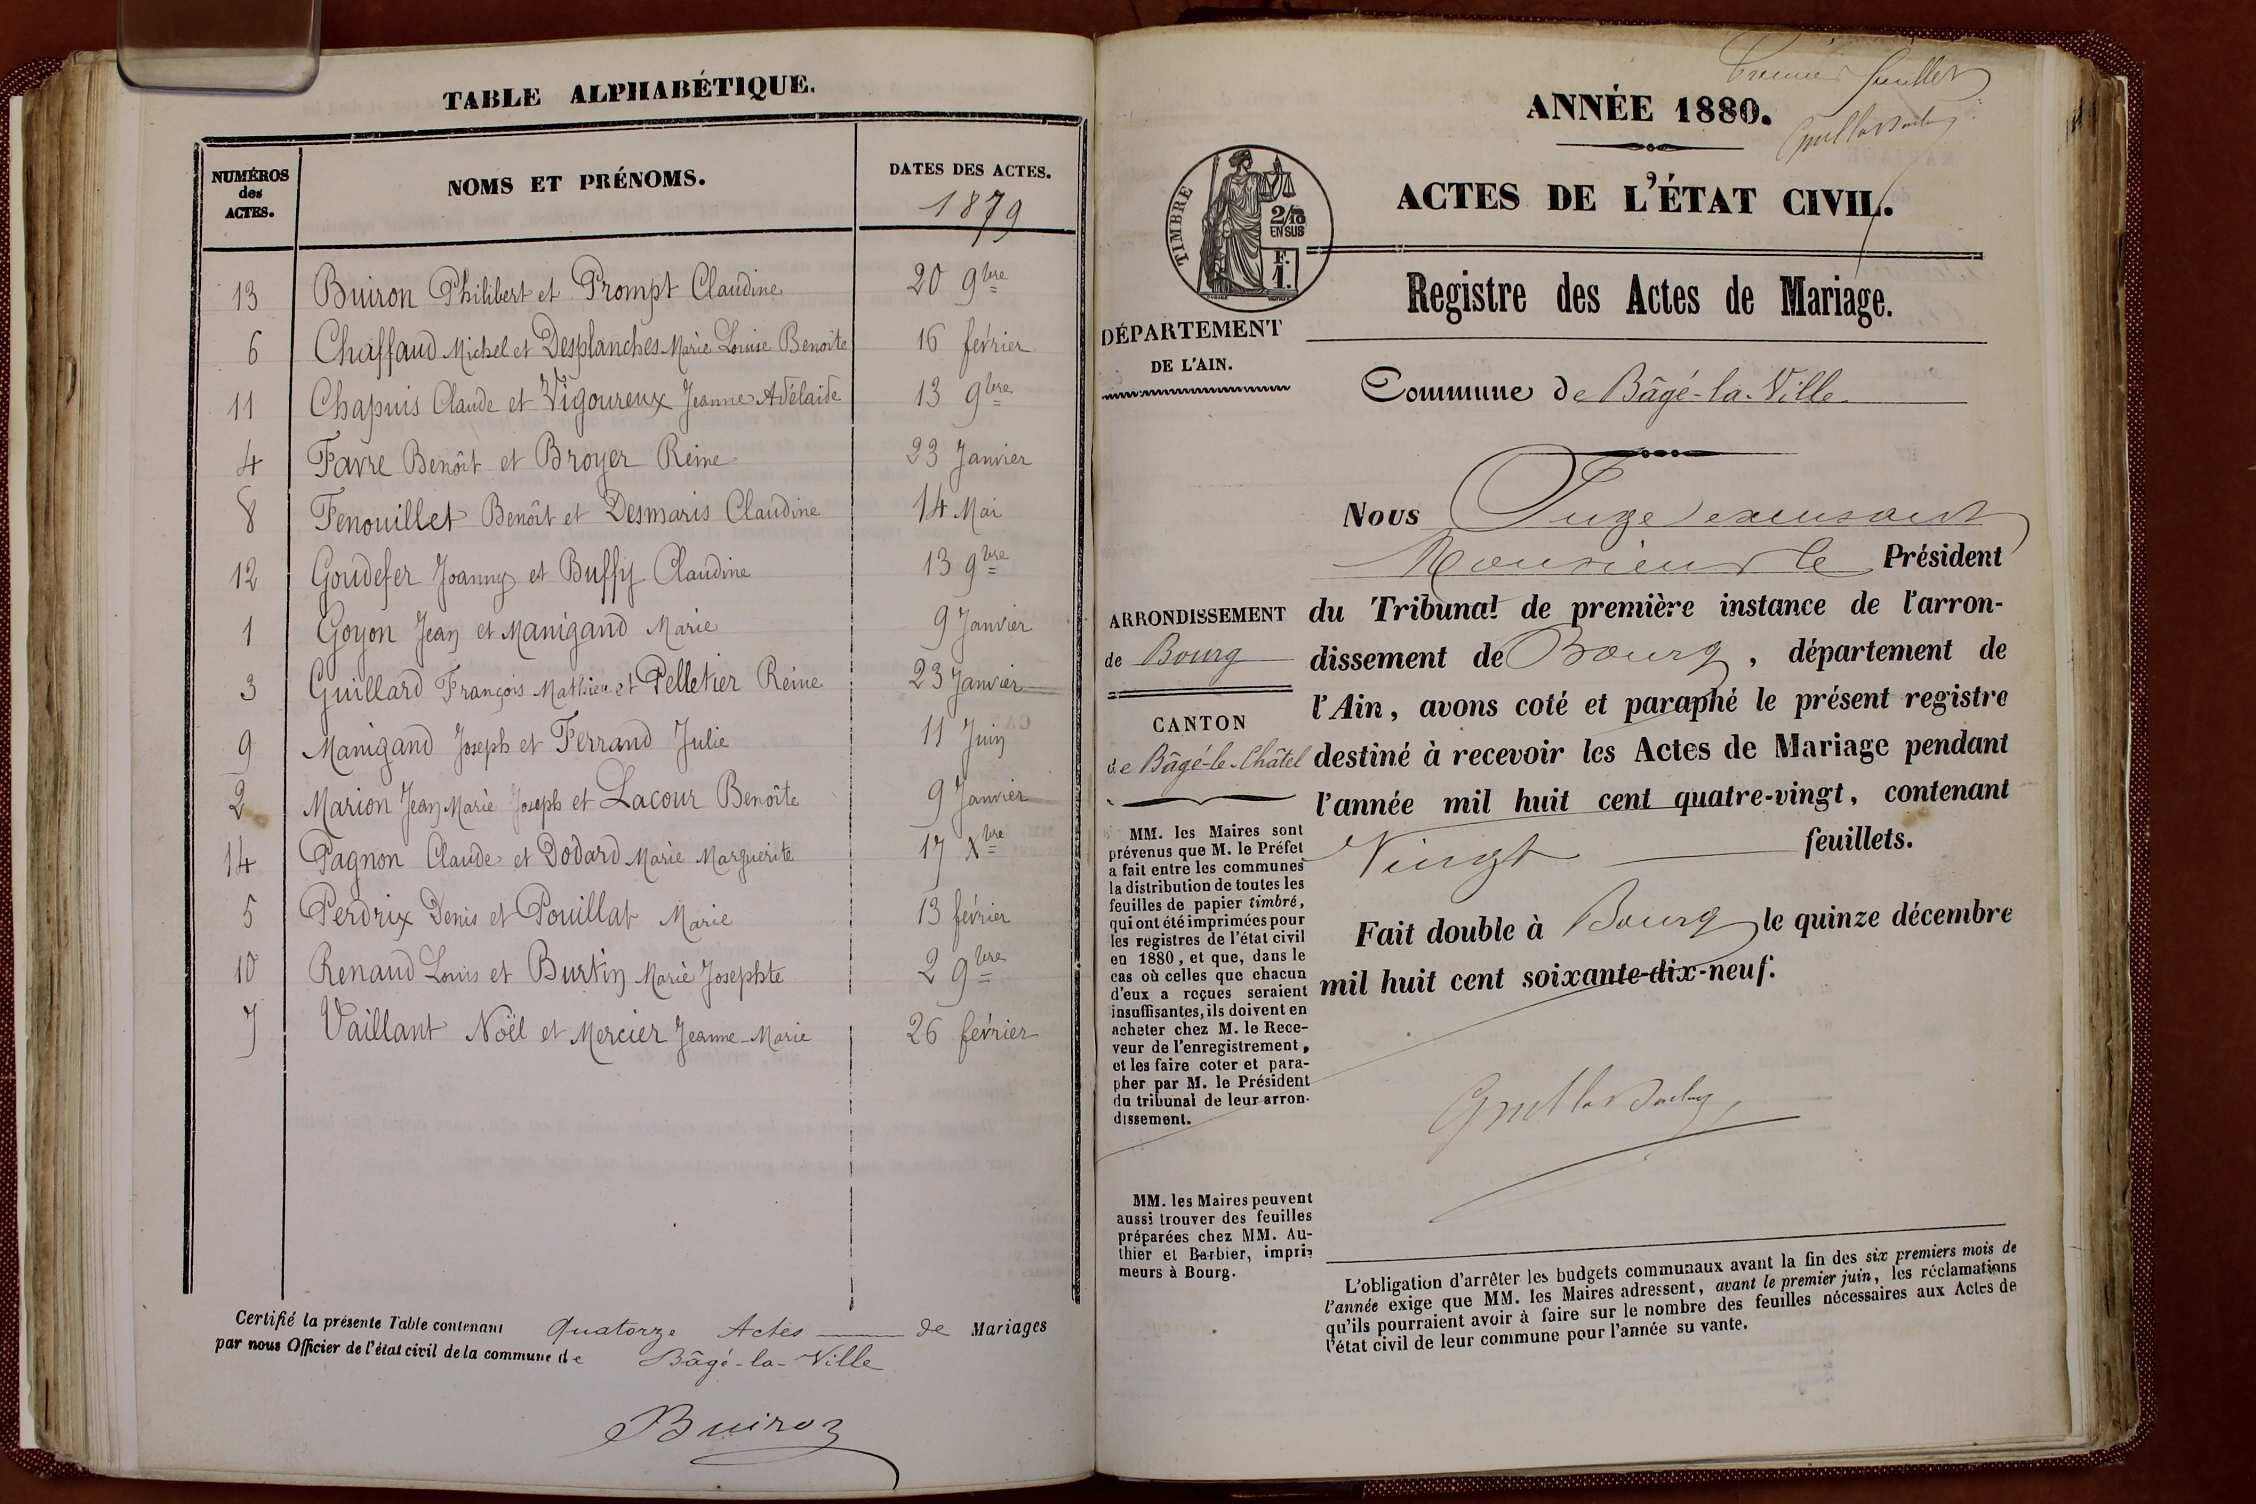 TABLE ALPHABÉTIQUE.
NUMÉROS des ACTES. NOMS ET PRÉNOMS. DATES DES ACTES.
1879
13 Buiron Philibert et Prompt Claudine 20 9bre
6 Chaffaud Michel et Desplanches Marie Louise Benoite 16 février
11 Chapuis Claude et Vigoureux Jeanne Adélaide 13 9bre
4 Favre Benôit et Broyer Reine 23 Janvier
8 Fenouillet Benôit et Desmaris Claudine 14 Mai
12 Goudefer Joanny et Buffy Claudine 13 9bre
1 Goyon Jean et Manigand Marie 9 Janvier
3 Guillard François Mathieu et Pelletier Reine 23 Janvier
9 Manigand Joseph et Ferrand Julie 11 Juin
2 Marion Jean Marie Joseph et Lacour Benoîte 9 Janvier
14 Pagnon Claude et Dodard Marie Marguerite 17 Xbre
5 Perdrix Denis et Pouillat Marie 13 février
10 Renaud Louis et Burtin Marie Josephte 2 9bre
7 Vaillant Noël et Mercier Jeanne-Marie 26 février
Certifié la présente Table contenant quatorze Actes de Mariages
par nous Officier de l'état civil de la commune de Bâgé-la-Ville
Buiron
Premier feuillet
ANNÉE 1880.
ACTES DE L'ÉTAT CIVIL.
TIMBRE
2/10
EN SUS
F.
1.
Registre des Actes de Mariage.
DÉPARTEMENT
DE L'AIN.
Commune de Bâgé-la-Ville
Nous Juge
Monsieur le Président
du Tribunal de première instance de l'arron-
dissement de Bourg, département de
l'Ain, avons coté et paraphé le présent registre
destiné à recevoir les Actes de Mariage pendant
l'année mil huit cent quatre-vingt, contenant
Vingt feuillets.
Fait double à Bourg le quinze décembre
mil huit cent soixante-dix-neuf.
ARRONDISSEMENT
de Bourg
CANTON
de Bâgé-le-Châtel
MM. les Maires sont
prévenus que M. le Préfet
a fait entre les communes
la distribution de toutes les
feuilles de papier timbré,
qui ont été imprimées pour
les registres de l'état civil
en 1880, et que, dans le
cas où celles que chacun
d'eux a reçues seraient
insuffisantes, ils doivent en
acheter chez M. le Rece-
veur de l'enregistrement,
et les faire coter et para-
pher par M. le Président
du tribunal de leur arron-
dissement.
MM. les Maires peuvent
aussi trouver des feuilles
préparées chez MM. Au-
thier et Barbier, impri-
meurs à Bourg.
L'obligation d'arrêter les budgets communaux avant la fin des six premiers mois de
l'année exige que MM. les Maires adressent, avant le premier juin, les réclamations
qu'ils pourraient avoir à faire sur le nombre des feuilles nécessaires aux Actes de
l'état civil de leur commune pour l'année su vante.